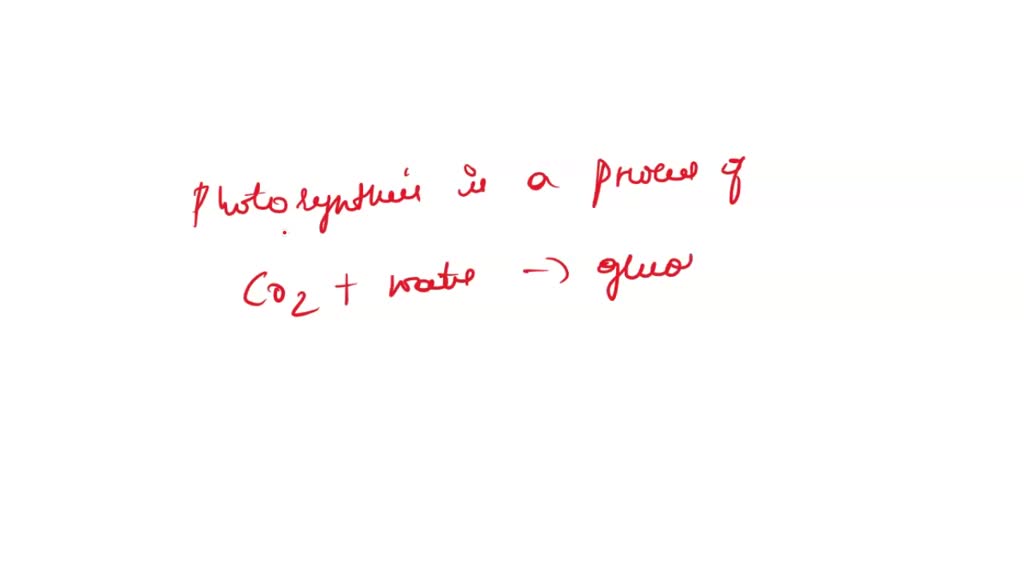 Photosynthesis is a process of
CO2 + water → gluo